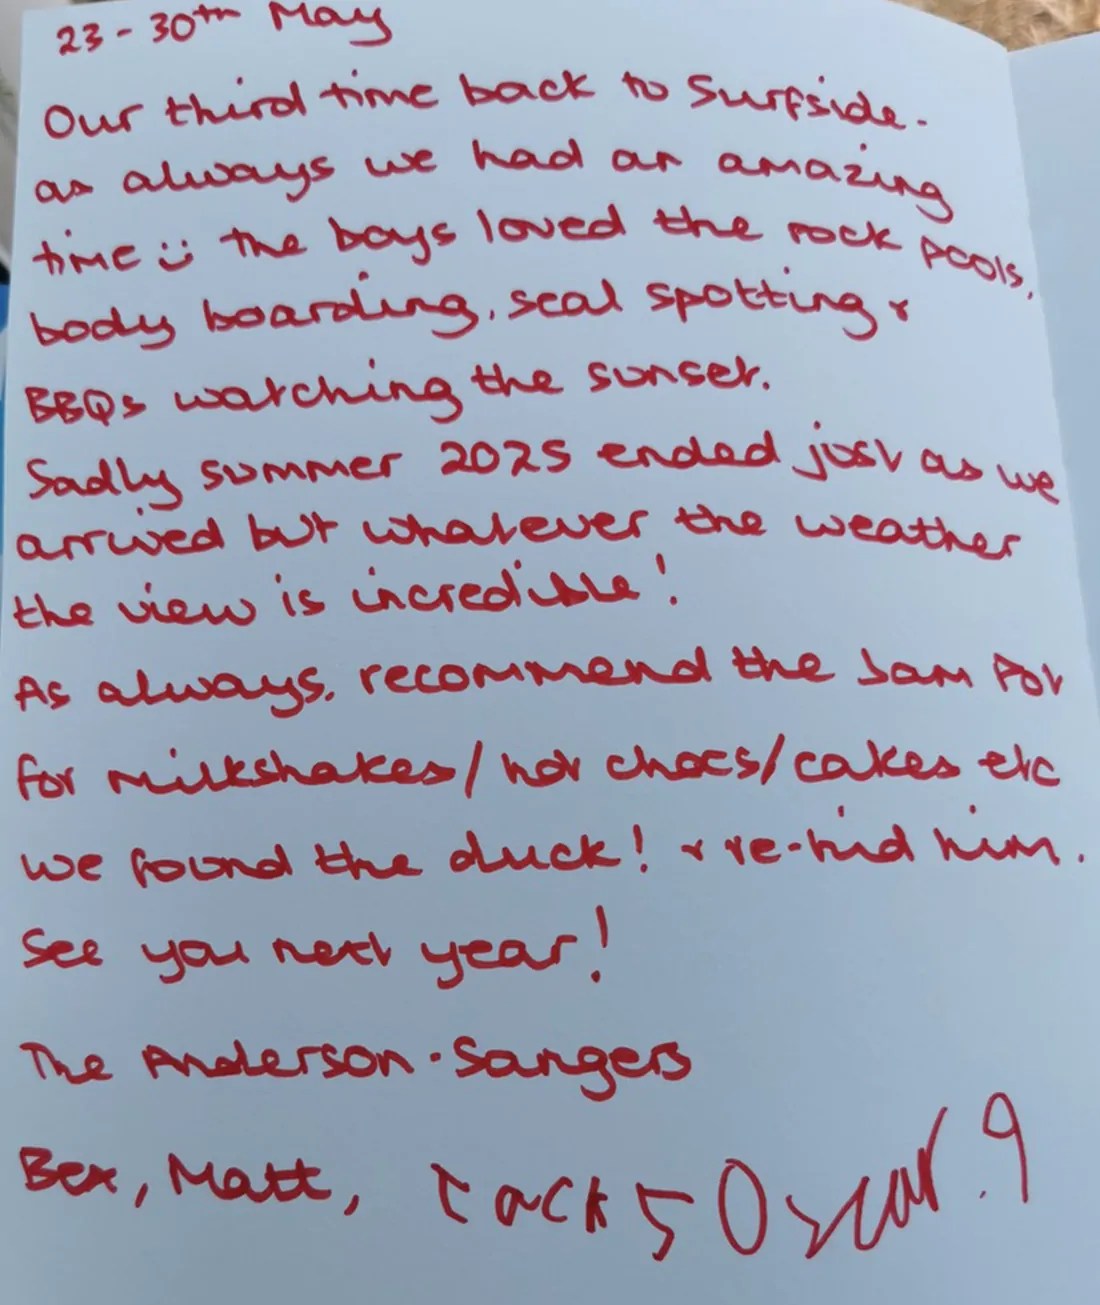 23-30th May
Our third time back to Surfside.
as always we had an amazing
time :) The boys loved the rock pools,
body boarding, seal spotting &
BBQs watching the sunset.
Sadly summer 2025 ended just as we
arrived but whatever the weather
the view is incredible!
As always, recommend the Jam Pot
for milkshakes/hot chocs/cakes etc
we found the duck! & re-hid him.
See you next year!
The Anderson-Sangers
Bex, Matt, Jack 5 Oscar. 9